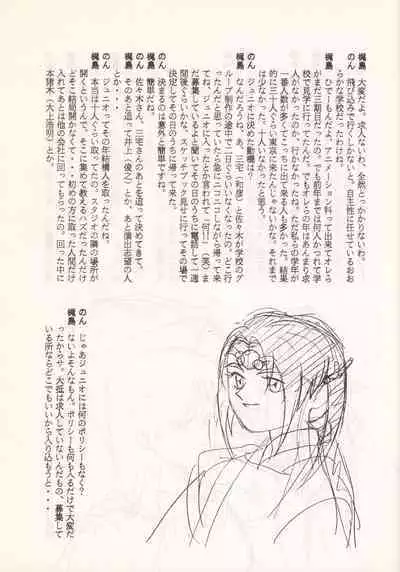 梶島　大変だよ。求人ないわ、全然とっかかりないわ。
のん　飛び込みで行くしかないと。自主性に任せているおおらかな学校だったわけね。
梶島　ひでーもんだよ。アニメーション科って出来てオレらがまだ三期目だったの。でも前年までは何人かつれて学校で見学に行ってたんだ。でもオレらの年はあんまり求人がなかったのか、行かなかったね。ただ私らの学年が一番人数が多くてこっちに出て来る人も多かった。結果的に三十人ぐらい東京に来たんじゃないかな。それまでは少なかった。十人いなかったと思う。
のん　ジュニオに決めた動機は？
梶島　なんだろうね。三宅（和彦）と佐々木が学校のグループ制作の途中で二日ぐらいいなくなったの。どこ行ったんだと思っていたら急にニコニコしながら帰って来てね。「ジュニオに入った」とか言われて「何!!」（笑）まだ募集しているよと聞いてその日のうちに電話して一週間後ぐらいかなスケッチブック見せに行ってその場で決定してその日のうちに帰って来た。
のん　簡単だね。
梶島　決まるのは意外と簡単ですね。
のん　佐々木さん、三宅さんのあとを追って決めてきて。
梶島　そのあとを追って井上（俊之）とか、あと演出志望の人とか・・・。
のん　ジュニオってその年結構人を取ったんだね。
梶島　本当は十人ぐらい取ってたの。スタジオの隣の場所が開くというんで、そこに集めて教えるハズだったんだけどそこ結局開かなくて・・・初めの方に取った人間だけ入れてあとは他の会社に回ってもらったの。回った中に本猪木（大上浩明）とか。
のん　じゃあジュニオには何のポリシーもなく？
梶島　ないよそんなもん。ポリシーも何も入るだけで大変だったからサ。大抵は求人していないんだもの、募集している所ならどこでもいいから入り込もうと・・・